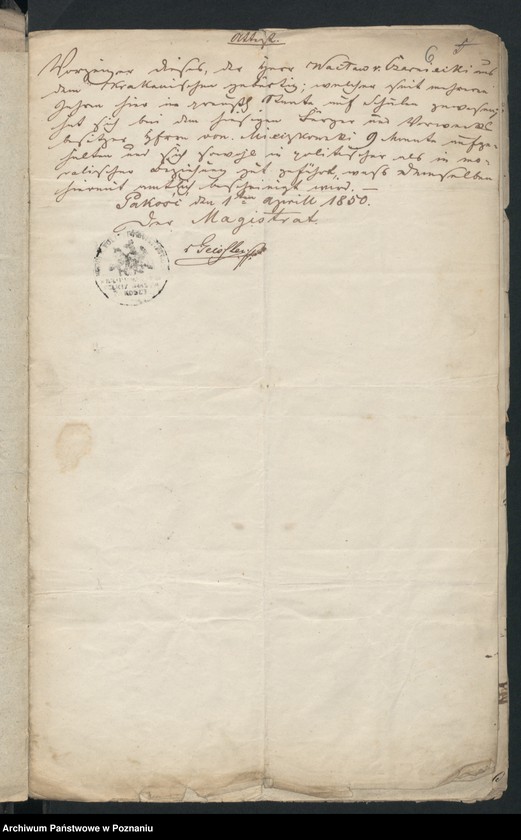 Attest.
6 5
Vorzeiger dieses, der Herr Wacław v. Czarniecki aus
dem Krakauischen gebürtig; welcher seit mehrere
Jahre hier in preuß. Staate auf Schulen gewesen;
hat sich bei dem hiesigen Bürger und Vorwerks
besitzer Herrn von 9 Monate aufge-
halten und sich sowohl in politischer als in mo-
ralischer Beziehung gut geführt, was demselben
hiermit amtlich bescheinigt wird. —
Pakość den 1ten Aprill 1850.
Der Magistrat
Geisler
Archiwum Państwowe w Poznaniu